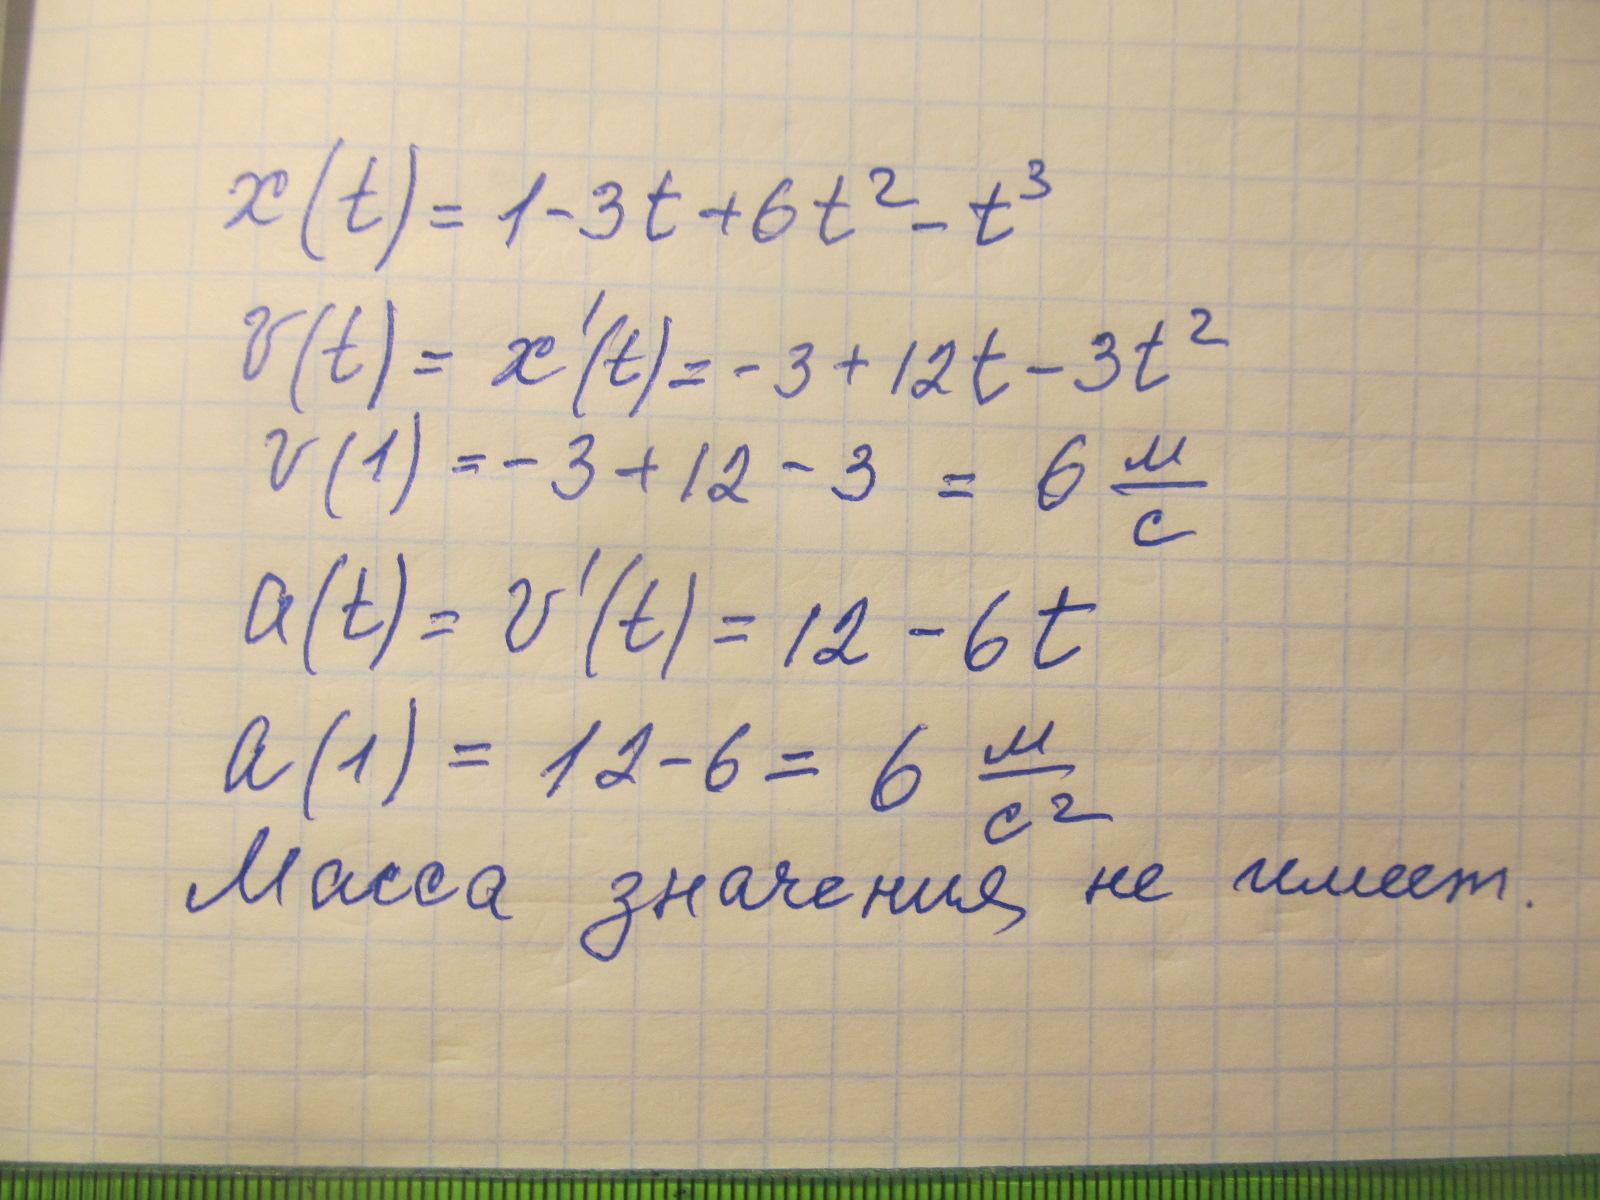 x(t) = 1 - 3t + 6t² - t³
v(t) = x'(t) = -3 + 12t - 3t²
v(1) = -3 + 12 - 3 = 6 м/с
a(t) = v'(t) = 12 - 6t
a(1) = 12 - 6 = 6 м/с²
Масса значения не имеет.